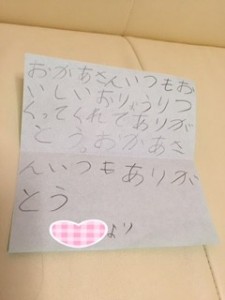 おかあさんいつもお
いしいおりょうりつ
くってくれてありが
とう。おかあさ
んいつもありが
とう
より